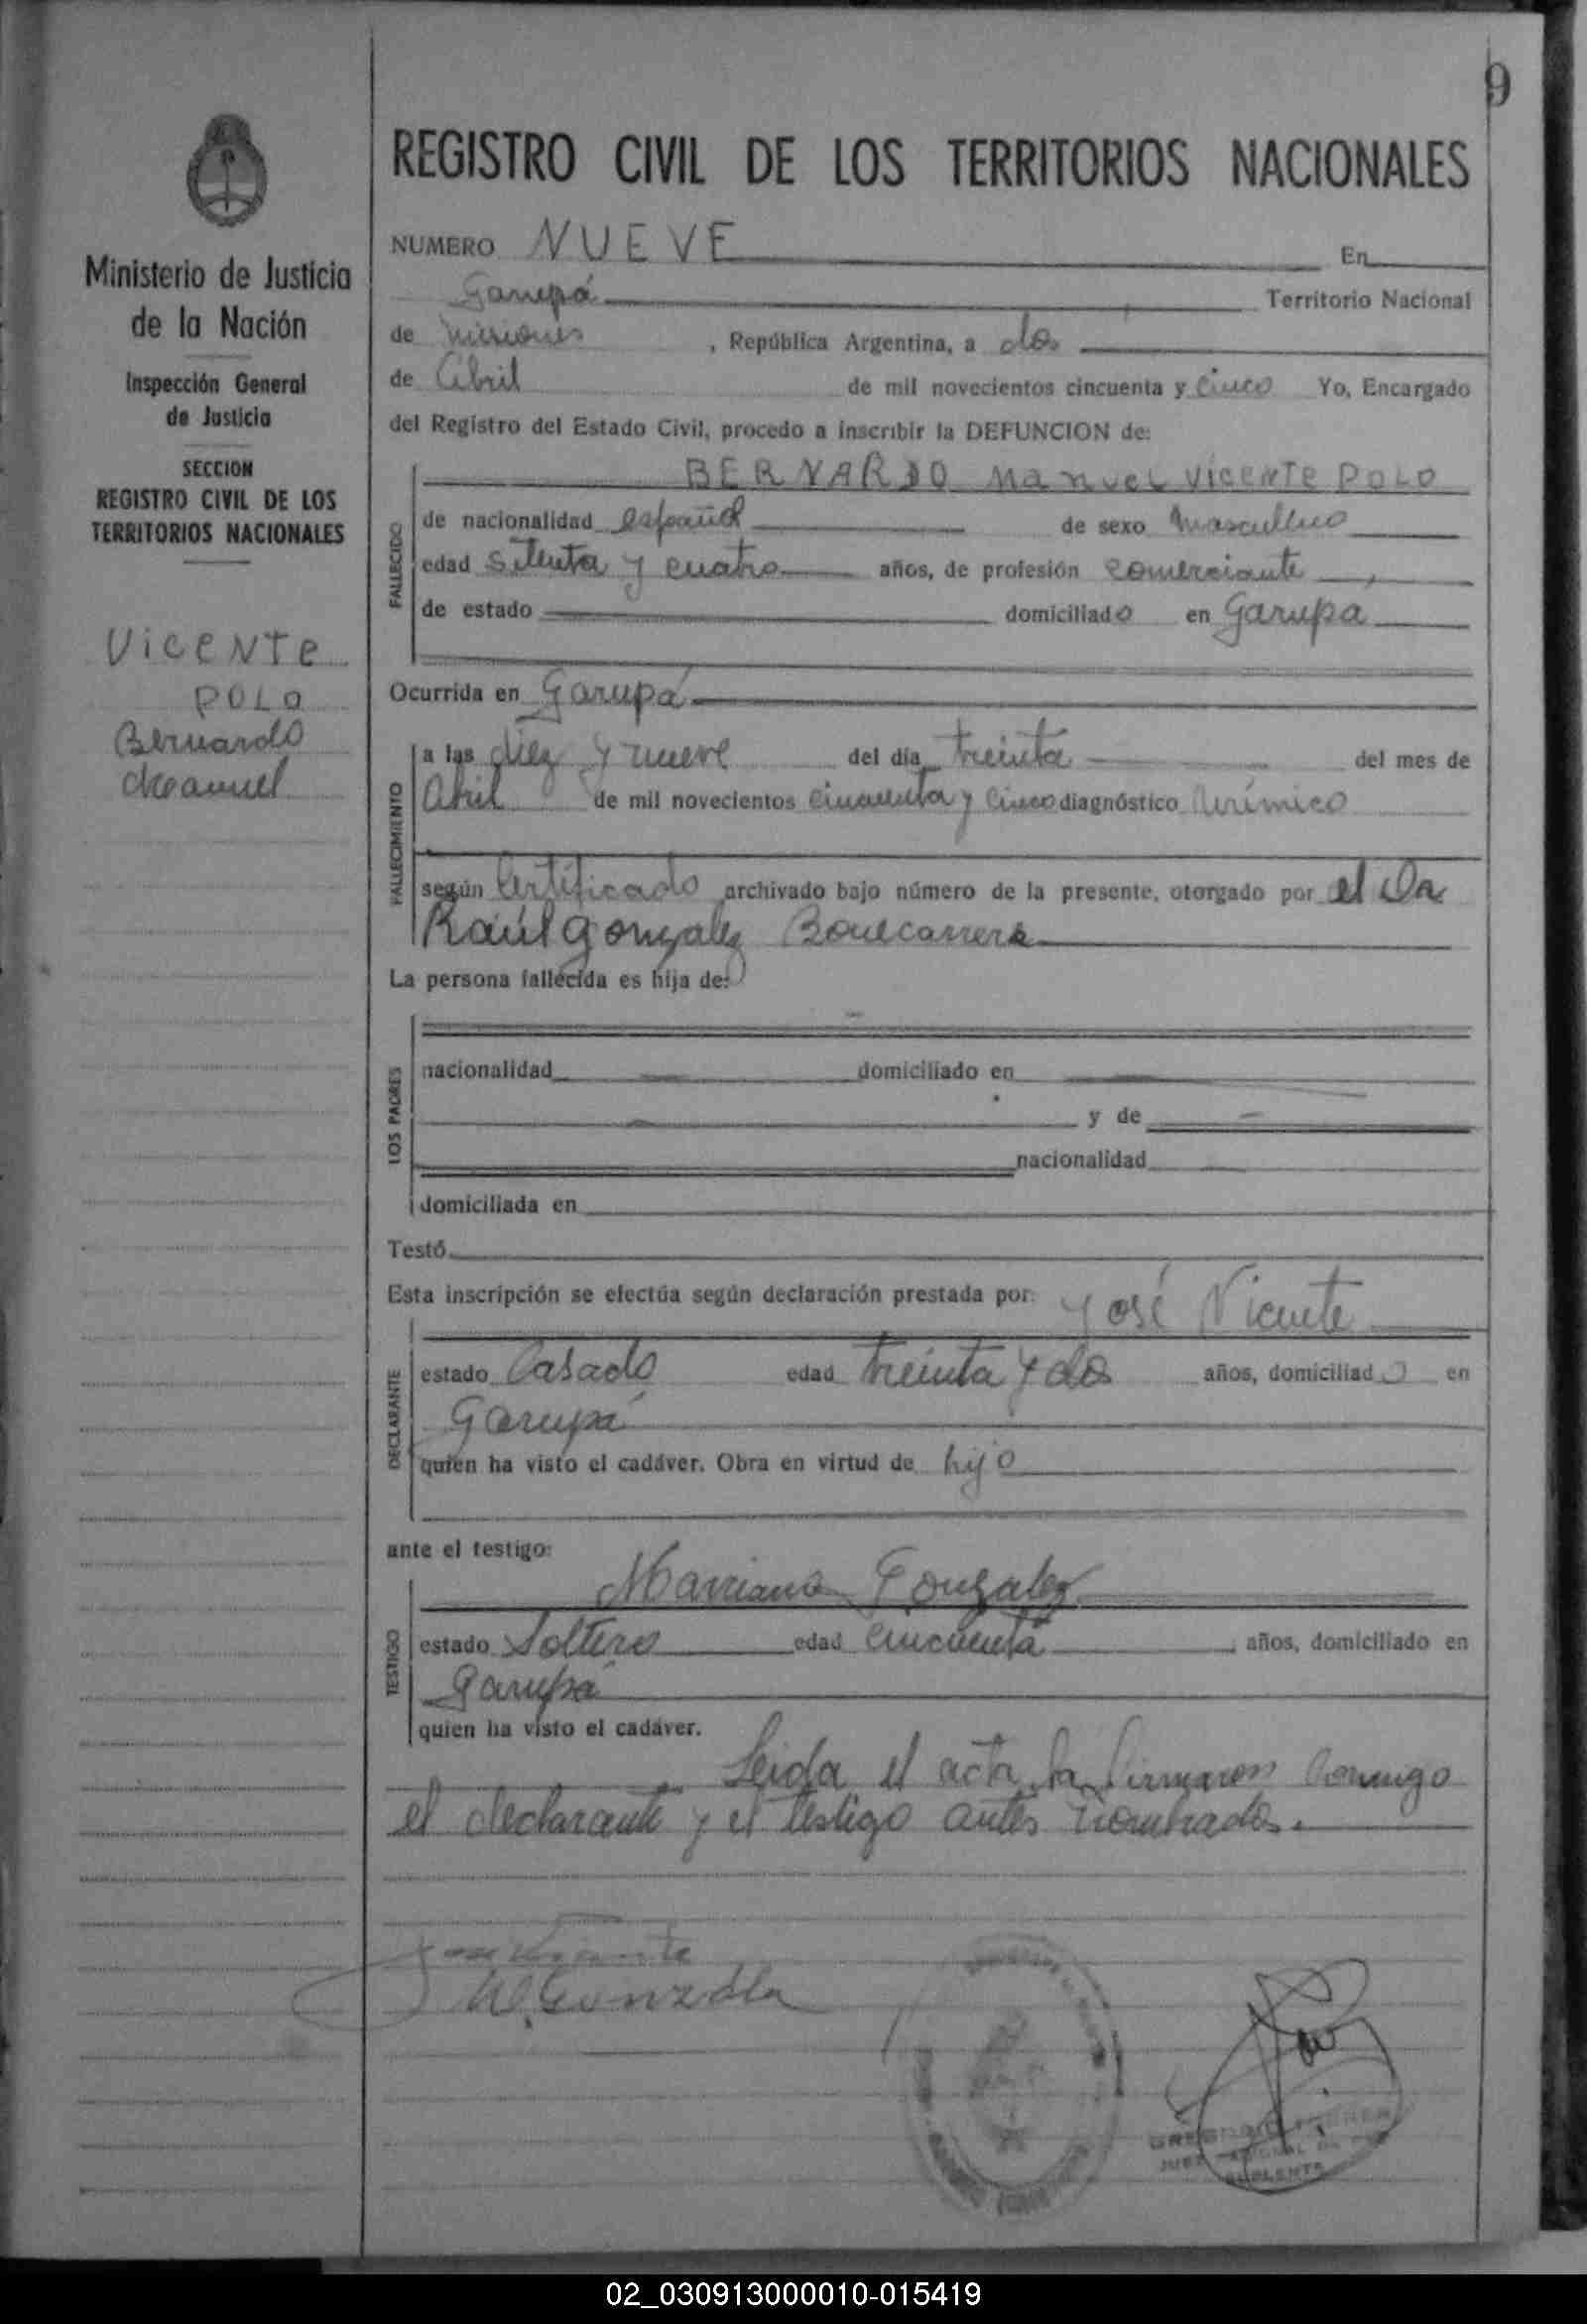 9
Ministerio de Justicia
de la Nación
Inspección General
de Justicia
SECCION
REGISTRO CIVIL DE LOS
TERRITORIOS NACIONALES
Vicente
Polo
Bernardo
Manuel
REGISTRO CIVIL DE LOS TERRITORIOS NACIONALES
NUMERO NUEVE En
Garupá Territorio Nacional
de Misiones, República Argentina, a dos
de Abril de mil novecientos cincuenta y cinco Yo, Encargado
del Registro del Estado Civil, procedo a inscribir la DEFUNCION de:
BERNARDO Manuel Vicente Polo
FALLECIDO
de nacionalidad español de sexo masculino
edad setenta y cuatro años, de profesión comerciante
de estado domiciliado en Garupá
Ocurrida en Garupá
FALLECIMIENTO
a las diez y nueve del día treinta del mes de
Abril de mil novecientos cincuenta y cinco diagnóstico Urémico
según Certificado archivado bajo número de la presente, otorgado por el Dr
Raúl Gonzalez
La persona fallecida es hija de:
LOS PADRES
nacionalidad domiciliado en
y de
nacionalidad
domiciliada en
Testó
Esta inscripción se efectúa según declaración prestada por: José Vicente
DECLARANTE
estado Casado edad treinta y dos años, domiciliado en
Garupá
quien ha visto el cadáver. Obra en virtud de hijo
ante el testigo:
Mariano Gonzalez
TESTIGO
estado Soltero edad cincuenta años, domiciliado en
Garupá
quien ha visto el cadáver.
Leida el acta la firmaron conmigo
el declarante y el testigo antes nombrados.
Jose Vicente
M. Gonzalez
SUPLENTE
02_030913000010-015419